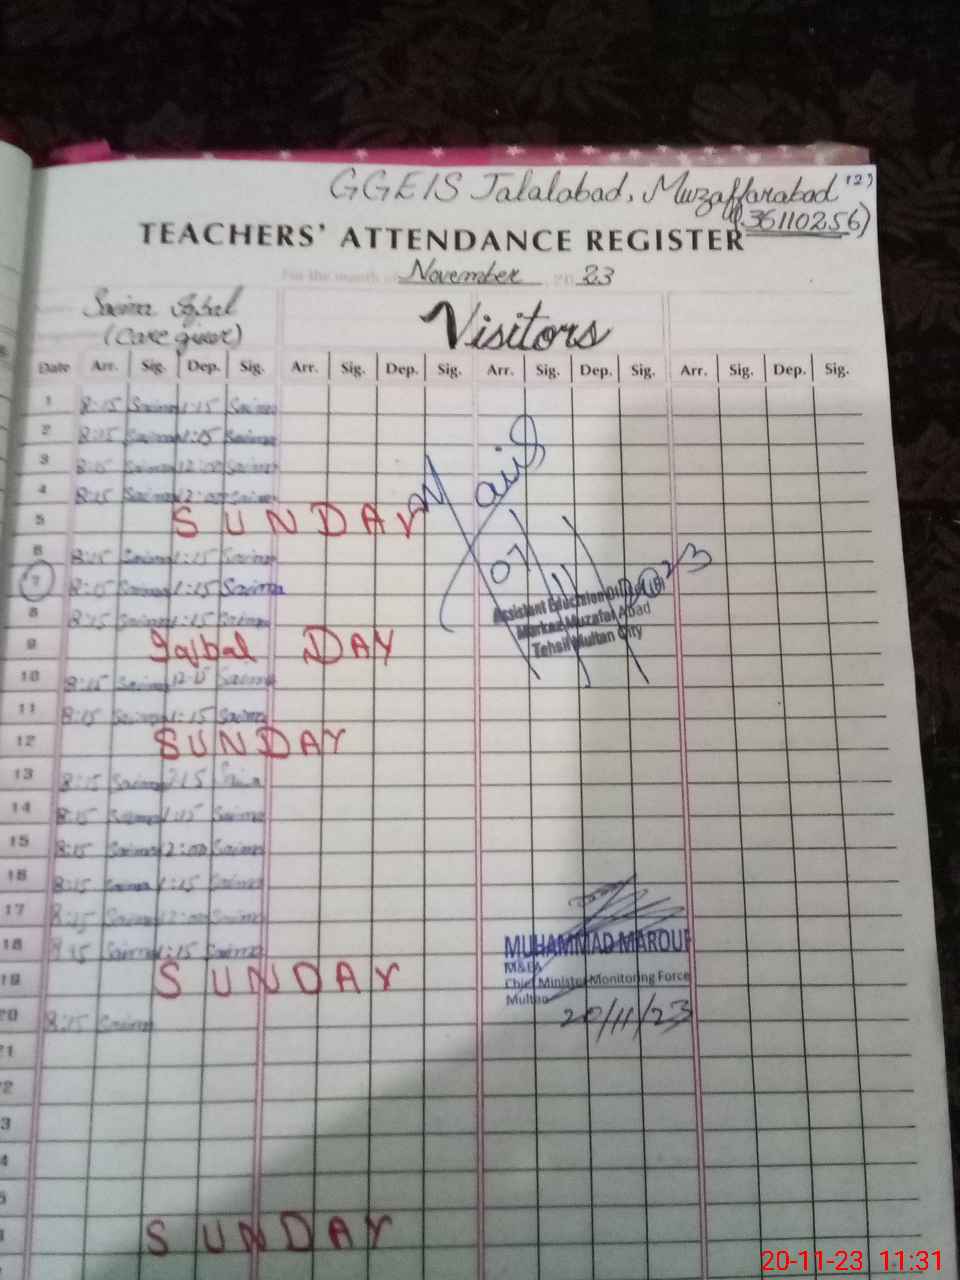 GGEIS Jalalabad, Muzaffarabad
(36110256)
TEACHERS' ATTENDANCE REGISTER
For the month of November 2023
Saima Iqbal
(Care giver)
Visitors
Date Arr. Sig. Dep. Sig. Arr. Sig. Dep. Sig. Arr. Sig. Dep. Sig. Arr. Sig. Dep. Sig.
1 8:15 Saima 1:15 Saima
2 8:15 Saima 1:15 Saima
3 8:15 Saima 12:00 Saima
4 8:15 Saima 2:00 Saima
5 SUNDAY
6 8:15 Saima 1:15 Saima
7 8:15 Saima 1:15 Saima
8 8:15 Saima 1:15 Saima
07/11/2023
Assistant Education Officer
Markaz Muzafar Abad
Tehsil Multan City
9 Iqbal DAY
10 8:15 Saima Saima
11 8:15 Saima 1:15 Saima
12 SUNDAY
13 8:15 Saima
14 8:15 Saima 1:15 Saima
15 8:15 Saima 2:00 Saima
16 8:15 Saima 1:15 Saima
17 8:15 Saima 12:00 Saima
18 8:15 Saima 1:15 Saima
MUHAMMAD MAROUF
M&EA
Chief Minister Monitoring Force
Multan
19 SUNDAY
20/11/23
20 8:15 Saima
SUNDAY
20-11-23 11:31